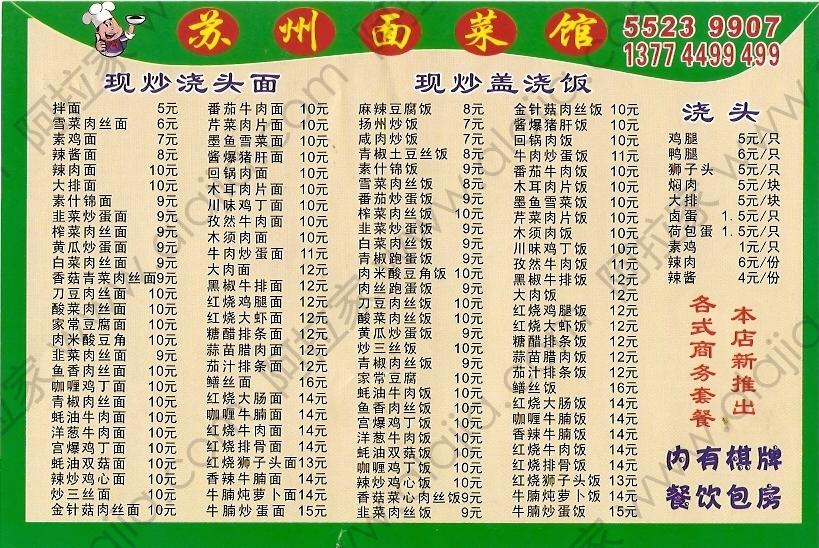 苏州面菜馆
5523 9907
13774499499
现炒浇头面
拌面 5元
雪菜肉丝面 6元
素鸡面 7元
辣酱面 8元
辣肉面 10元
大排面 10元
素什锦面 9元
韭菜炒蛋面 9元
榨菜肉丝面 9元
黄瓜炒蛋面 9元
白菜肉丝面 9元
香菇青菜肉丝面9元
刀豆肉丝面 10元
酸菜肉丝面 10元
家常豆腐面 10元
肉米酸豆角 10元
韭菜肉丝面 9元
鱼香肉丝面 10元
咖喱鸡丁面 10元
青椒肉丝面 10元
蚝油牛肉面 10元
洋葱牛肉面 10元
宫爆鸡丁面 10元
蚝油双菇面 10元
辣炒鸡心面 10元
炒三丝面 10元
金针菇肉丝面 10元
番茄牛肉面 10元
芹菜肉片面 10元
墨鱼雪菜面 10元
酱爆猪肝面 10元
回锅肉面 10元
木耳肉片面 10元
川味鸡丁面 10元
孜然牛肉面 10元
木须肉面 10元
牛肉炒蛋面 11元
大肉面 12元
黑椒牛排面 12元
红烧鸡腿面 12元
红烧大虾面 12元
糖醋排条面 12元
蒜苗腊肉面 12元
茄汁排条面 12元
鳝丝面 16元
红烧大肠面 14元
咖喱牛腩面 14元
红烧牛肉面 14元
红烧排骨面 14元
红烧狮子头面13元
香辣牛腩面 14元
牛腩炖萝卜面14元
牛腩炒蛋面 15元
现炒盖浇饭
麻辣豆腐饭 8元
扬州炒饭 7元
咸肉炒饭 7元
青椒土豆丝饭 8元
素什锦饭 9元
雪菜肉丝饭 8元
番茄炒蛋饭 9元
榨菜肉丝饭 10元
韭菜炒蛋饭 9元
白菜肉丝饭 9元
青椒跑蛋饭 9元
肉米酸豆角饭 10元
肉丝跑蛋饭 9元
刀豆肉丝饭 10元
酸菜肉丝饭 10元
黄瓜炒蛋饭 9元
炒三丝饭 10元
青椒肉丝饭 10元
家常豆腐 10元
蚝油牛肉饭 10元
鱼香肉丝饭 10元
宫爆鸡丁饭 10元
洋葱牛肉饭 10元
蚝油双菇饭 10元
咖喱鸡丁饭 10元
辣炒鸡心饭 10元
香菇菜心肉丝饭9元
韭菜肉丝饭 9元
金针菇肉丝饭 10元
酱爆猪肝饭 10元
回锅肉饭 10元
牛肉炒蛋饭 11元
番茄牛肉饭 10元
木耳肉片饭 10元
墨鱼雪菜饭 10元
芹菜肉片饭 10元
木须肉饭 10元
川味鸡丁饭 10元
孜然牛肉饭 10元
黑椒牛排饭 12元
大肉饭 12元
红烧鸡腿饭 12元
红烧大虾饭 12元
糖醋排条饭 12元
蒜苗腊肉饭 12元
茄汁排条饭 12元
鳝丝饭 16元
红烧大肠饭 14元
咖喱牛腩饭 14元
香辣牛腩饭 14元
红烧牛肉饭 14元
红烧排骨饭 14元
红烧狮子头饭 13元
牛腩炖萝卜饭 14元
牛腩炒蛋饭 15元
浇头
鸡腿 5元/只
鸭腿 6元/只
狮子头 5元/只
焖肉 5元/块
大排 5元/块
卤蛋 1.5元/只
荷包蛋 1.5元/只
素鸡 1元/只
辣肉 6元/份
辣酱 4元/份
本店新推出
各式商务套餐
内有棋牌
餐饮包房
阿拉家 www.alajia.com